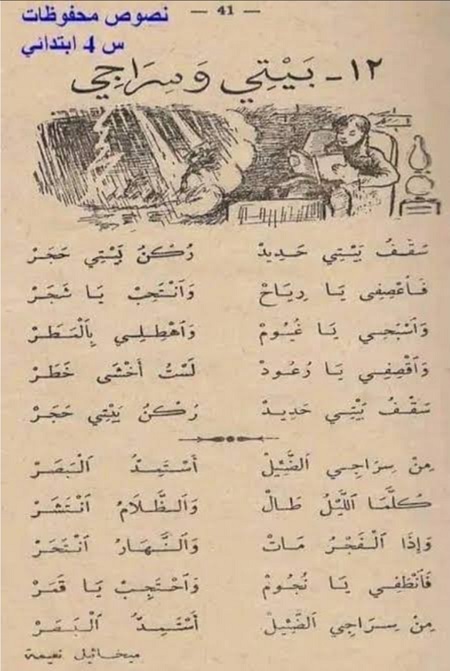 نصوص محفوظات
— 41 —
س 4 ابتدائي
١٢ - بَيْتِي وَسِرَاجِي
سَقْفُ بَيْتِي حَدِيدْ رُكْنُ بَيْتِي حَجَرْ
فَاعْصِفِي يَا رِيَاحْ وَانْتَحِبْ يَا شَجَرْ
وَاسْبَحِي يَا غُيُومْ وَاهْطِلِي بِالْمَطَرْ
وَاقْصِفِي يَا رُعُودْ لَسْتُ أَخْشَى خَطَرْ
سَقْفُ بَيْتِي حَدِيدْ رُكْنُ بَيْتِي حَجَرْ
مِنْ سِرَاجِي الضَّئِيلْ أَسْتَمِدُّ الْبَصَرْ
كُلَّمَا اللَّيْلُ طَالْ وَالظَّلَامُ انْتَشَرْ
وَإِذَا الْفَجْرُ مَاتْ وَالنَّهَارُ انْتَحَرْ
فَانْطَفِي يَا نُجُومْ وَاحْتَجِبْ يَا قَمَرْ
مِنْ سِرَاجِي الضَّئِيلْ أَسْتَمِدُّ الْبَصَرْ
ميخائيل نعيمة